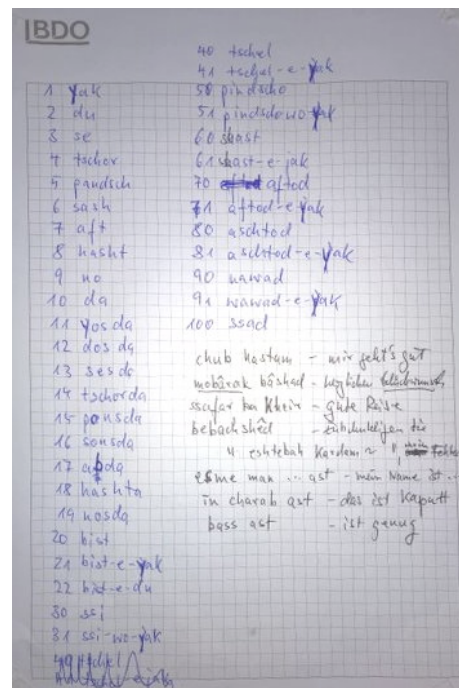 BDO
1 yak
2 du
3 se
4 tschor
5 pandsch
6 sash
7 aft
8 hasht
9 no
10 da
11 yosda
12 dosda
13 sesda
14 tschorda
15 ponsda
16 sonsda
17 abda
18 hashta
19 nosda
20 bist
21 bist-e-yak
22 bist-e-du
30 ssi
31 ssi-wo-yak
40 tschel
41 tschel-e-yak
50 pindscho
51 pindscho wo yak
60 shast
61 shast-e-jak
70 aftod
71 aftod-e-yak
80 aschtod
81 aschtod-e-yak
90 nawad
91 nawad-e-yak
100 ssad
chub hastam - mir geht's gut
mobârak bâshad - herzlichen
ssafar ba kheir - gute Reise
bebachshêd - entschuldigen Sie
" eshtebah kardam " mein Fehler
esme man ... ast - mein Name ist ...
in charab ast - das ist kaputt
bass ast - ist genug